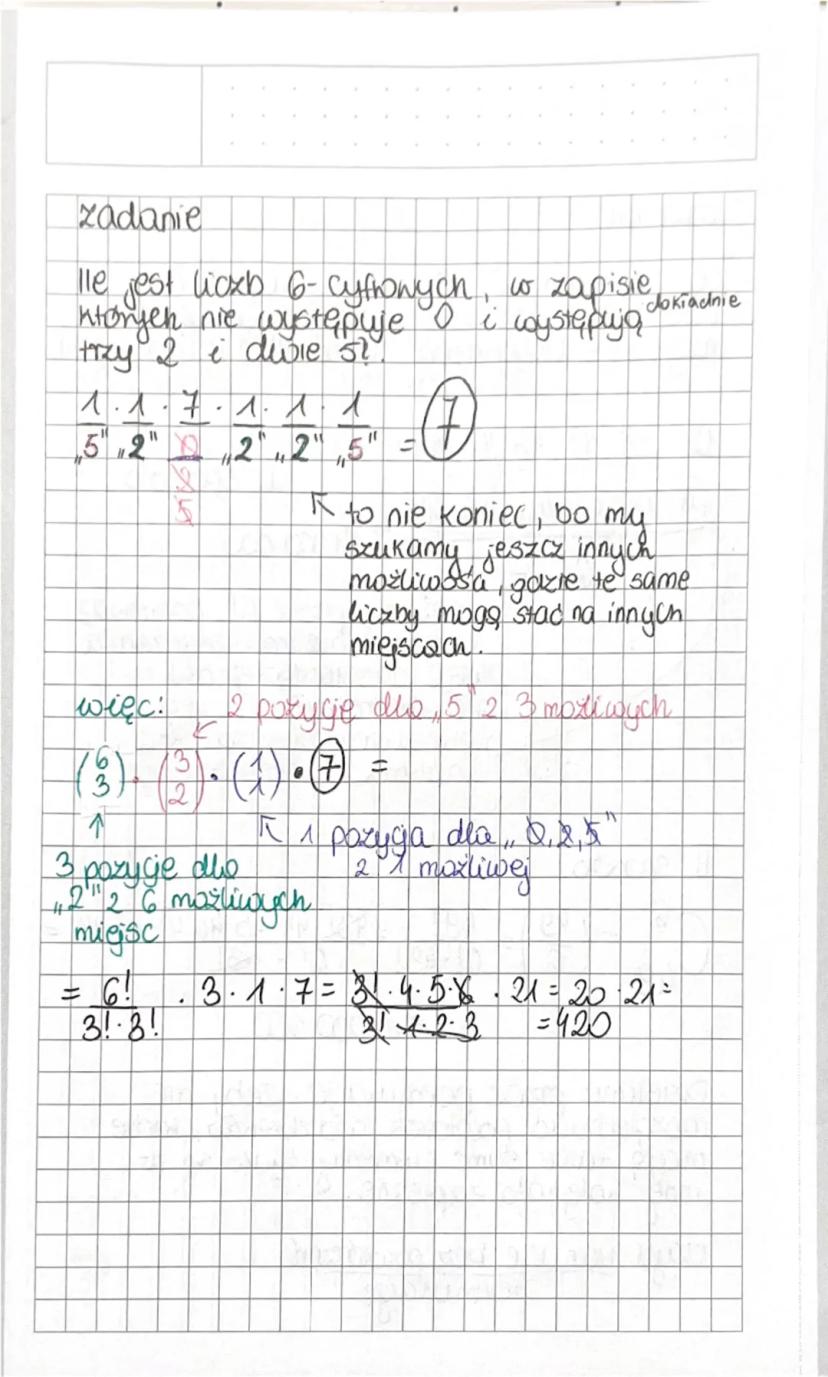 zadanie
Ile jest liczb 6-cyfrowych, w zapisie
których nie występuje 0 i występują dokładnie
trzy 2 i dwie 5?
1 · 1 · 7 · 1 · 1 · 1
„5" „2" 0 „2" „2" „5" = 7
2
5
↖ to nie koniec, bo my
szukamy jeszcz innych
możliwości, gdzie te same
liczby mogą stać na innych
miejscach.
więc: 2 pozycje dla „5" z 3 możliwych
(6 3) · (3 2) · (1 1) · 7 =
↑ ↖ 1 pozycja dla „0, 2, 5"
3 pozycje dla z 1 możliwej
„2" z 6 możliwych
miejsc
= 6! / 3! · 3! · 3 · 1 · 7 = 3! · 4 · 5 · 6 / 3! 1 · 2 · 3 · 21 = 20 · 21 =
= 420